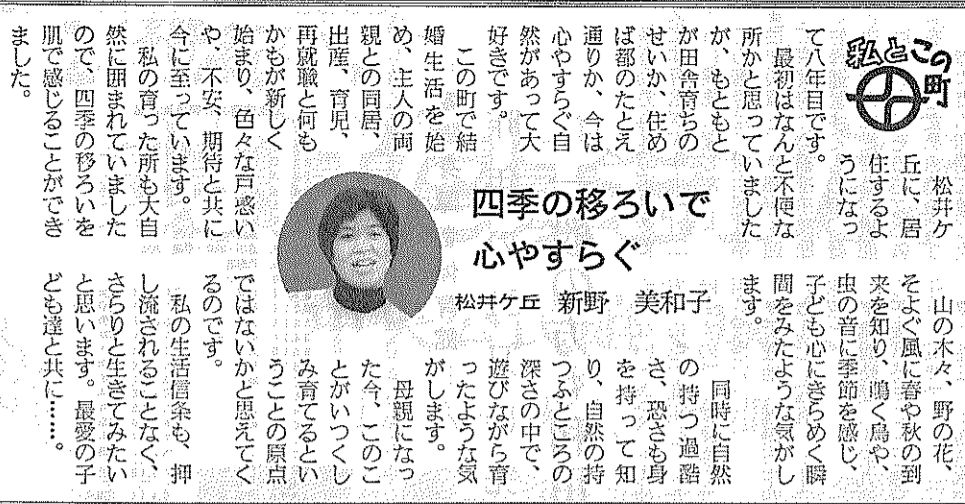 私とこの町
四季の移ろいで
心やすらぐ
松井ケ丘 新野 美和子
松井ケ
丘に、居
住するよ
うになっ
て八年目です。
最初はなんと不便な
所かと思っていました
が、もともと
が田舎育ちの
せいか、住め
ば都のたとえ
通りか、今は
心やすらぐ自
然があって大
好きです。
この町で結
婚生活を始
め、主人の両
親との同居、
出産、育児、
再就職と何も
かもが新しく
始まり、色々な戸惑い
や、不安、期待と共に
今に至っています。
私の育った所も大自
然に囲まれていました
ので、四季の移ろいを
肌で感じることができ
ました。
山の木々、野の花、
そよぐ風に春や秋の到
来を知り、鳴く鳥や、
虫の音に季節を感じ、
子ども心にきらめく瞬
間をみたような気がし
ます。
同時に自然
の持つ過酷
さ、恐さも身
を持って知
り、自然の持
つふところの
深さの中で、
遊びながら育
ったような気
がします。
母親になっ
た今、このこ
とがいつくし
み育てるとい
うことの原点
ではないかと思えてく
るのです。
私の生活信条も、押
し流されることなく、
さらりと生きてみたい
と思います。最愛の子
ども達と共に……。